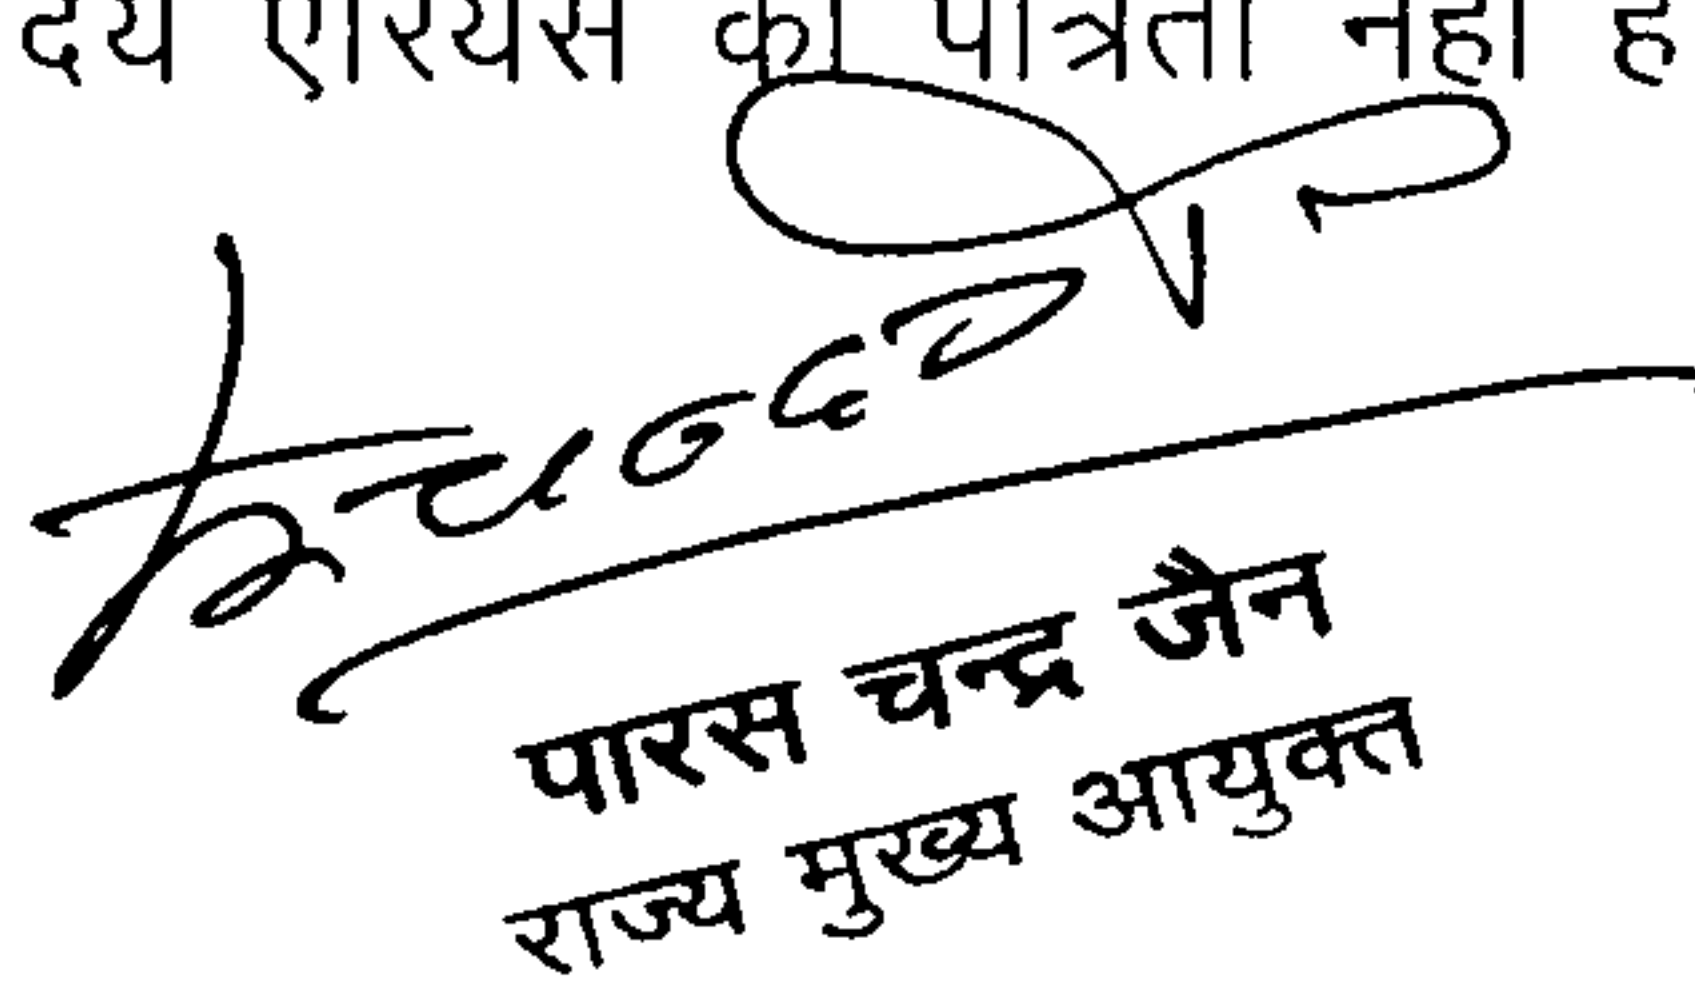 देय एरियस की पात्रता नहीं है
पारस चन्द्र जैन
राज्य मुख्य आयुक्त